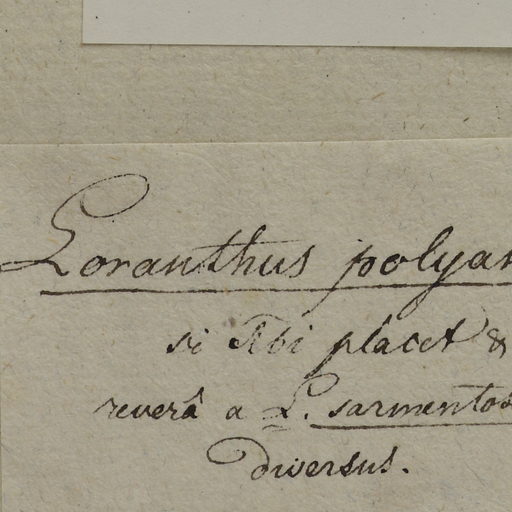 Loranthus polyan
si tibi placet &
reverâ a L. sarmentos
diversus.